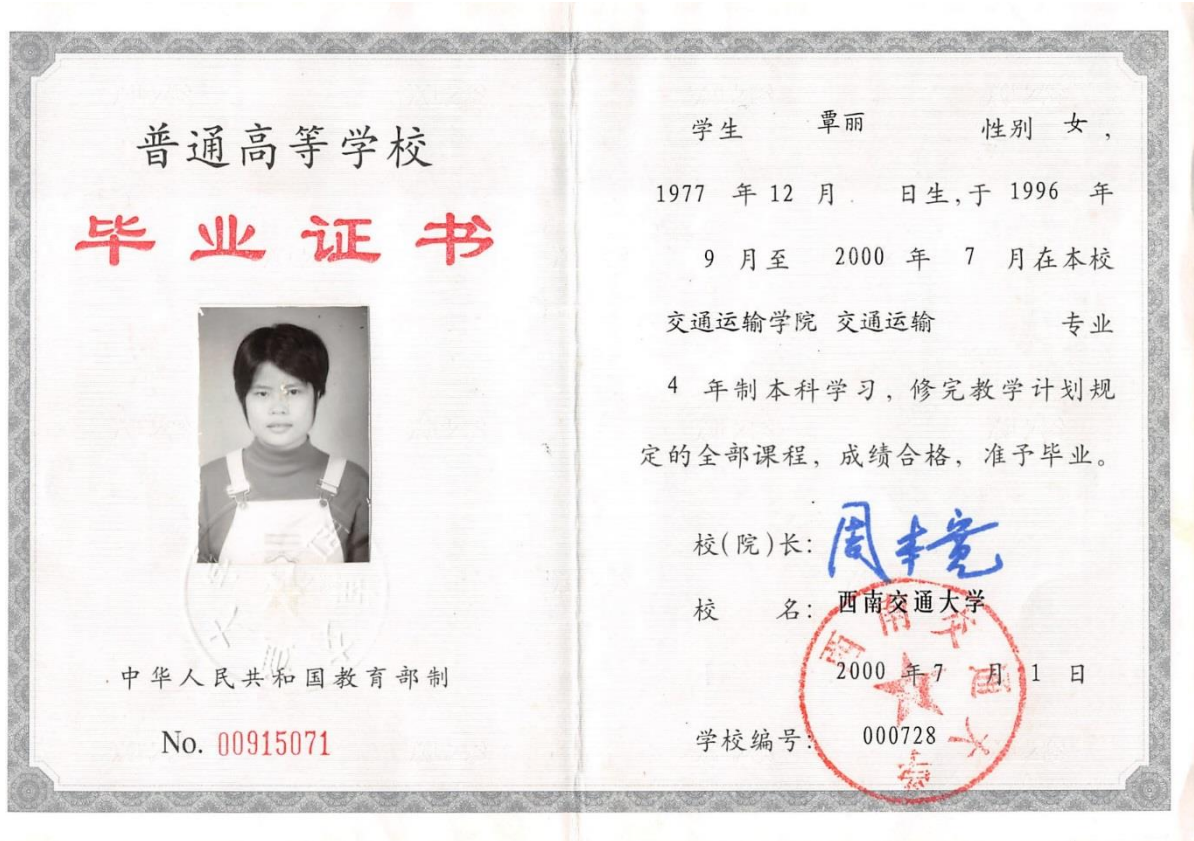 普通高等学校
毕业证书
中华人民共和国教育部制
No. 00915071
学生 覃丽 性别 女，
1977 年 12 月 日生，于 1996 年
9 月至 2000 年 7 月在本校
交通运输学院 交通运输 专业
4 年制本科学习，修完教学计划规
定的全部课程，成绩合格，准予毕业。
校(院)长: 周本宽
校 名: 西南交通大学
2000 年 7 月 1 日
学校编号: 000728
西南交通大学